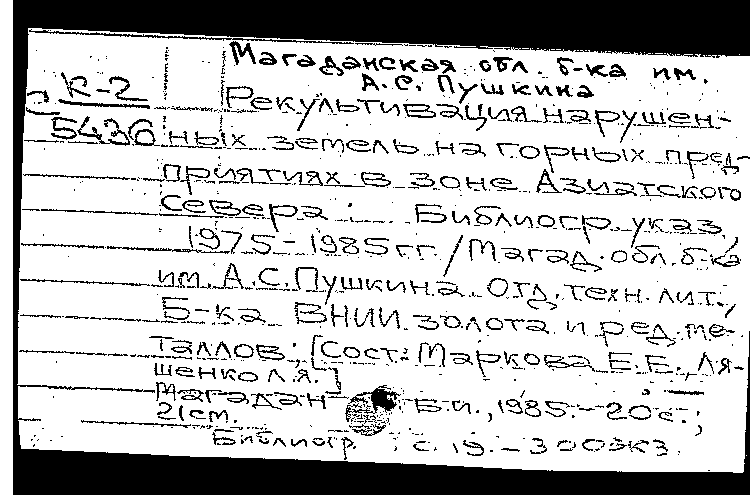 Магаданская обл. б-ка им.
А.С. Пушкина
К-2
5436
Рекультивация нарушен-
ных земель на горных пред-
приятиях в зоне Азиатского
севера : Библиогр. указ.,
1975-1985 гг. / Магад. обл. б-ка
им. А.С. Пушкина. Отд. техн. лит.,
Б-ка ВНИИ золота и ред. ме-
таллов; [Сост: Маркова Е.Е., Ля-
шенко Л.Я.]
Магадан Б.и., 1985. - 20 с.;
21 см.
Библиогр. : с. 19. - 300 экз.